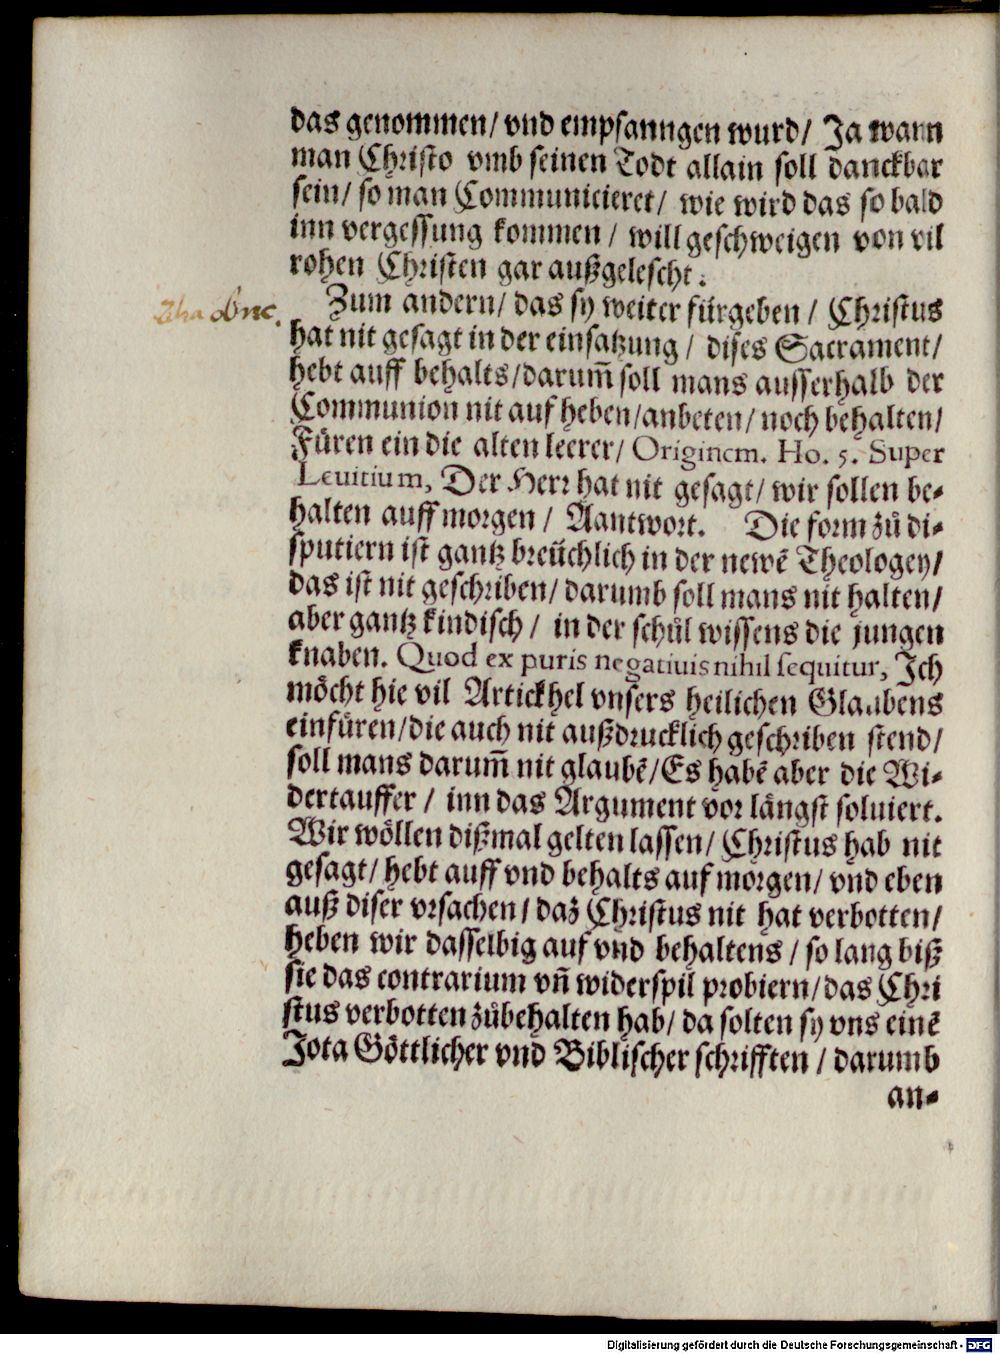 das genommen/ vnd empfanngen wurd/ Ja wann
man Christo vmb seinen Todt allain soll danckbar
sein/ so man Communicieret/ wie wird das so bald
inn vergessung kommen/ will geschweigen von vil
rohen Christen gar außgelescht.
Zum andern/ das sy weiter fürgeben/ Christus
hat nit gesagt in der einsatzung/ dises Sacrament/
hebt auff behalts/darum̃ soll mans ausserhalb der
Communion nit auf heben/anbeten/ noch behalten/
Füren ein die alten leerer/ Originem. Ho. 5. Super
Leuitium, Der Herr hat nit gesagt/ wir sollen be⸗
halten auff morgen/ Aantwort. Die form zů di⸗
sputiern ist gantz breüchlich in der newẽ Theologey/
das ist nit geschriben/ darumb soll mans nit halten/
aber gantz kindisch/ in der schůl wissens die jungen
knaben. Quod ex puris negatiuis nihil sequitur, Ich
möcht hie vil Artickhel vnsers heilichen Glaubens
einfüren/die auch nit außdrucklich geschriben stend/
soll mans darum̃ nit glaubẽ/Es habẽ aber die Wi⸗
dertauffer/ inn das Argument vor längst soluiert.
Wir wöllen dißmal gelten lassen/ Christus hab nit
gesagt/ hebt auff vnd behalts auf morgen/ vnd eben
auß diser vrsachen/ daz Christus nit hat verbotten/
heben wir dasselbig auf vnd behaltens/ so lang biß
sie das contrarium vñ widerspil probiern/das Chri
stus verbotten zůbehalten hab/ da solten sy vns einẽ
Jota Göttlicher vnd Biblischer schrifften/ darumb
an⸗
Digitalisierung gefördert durch die Deutsche Forschungsgemeinschaft - DFG